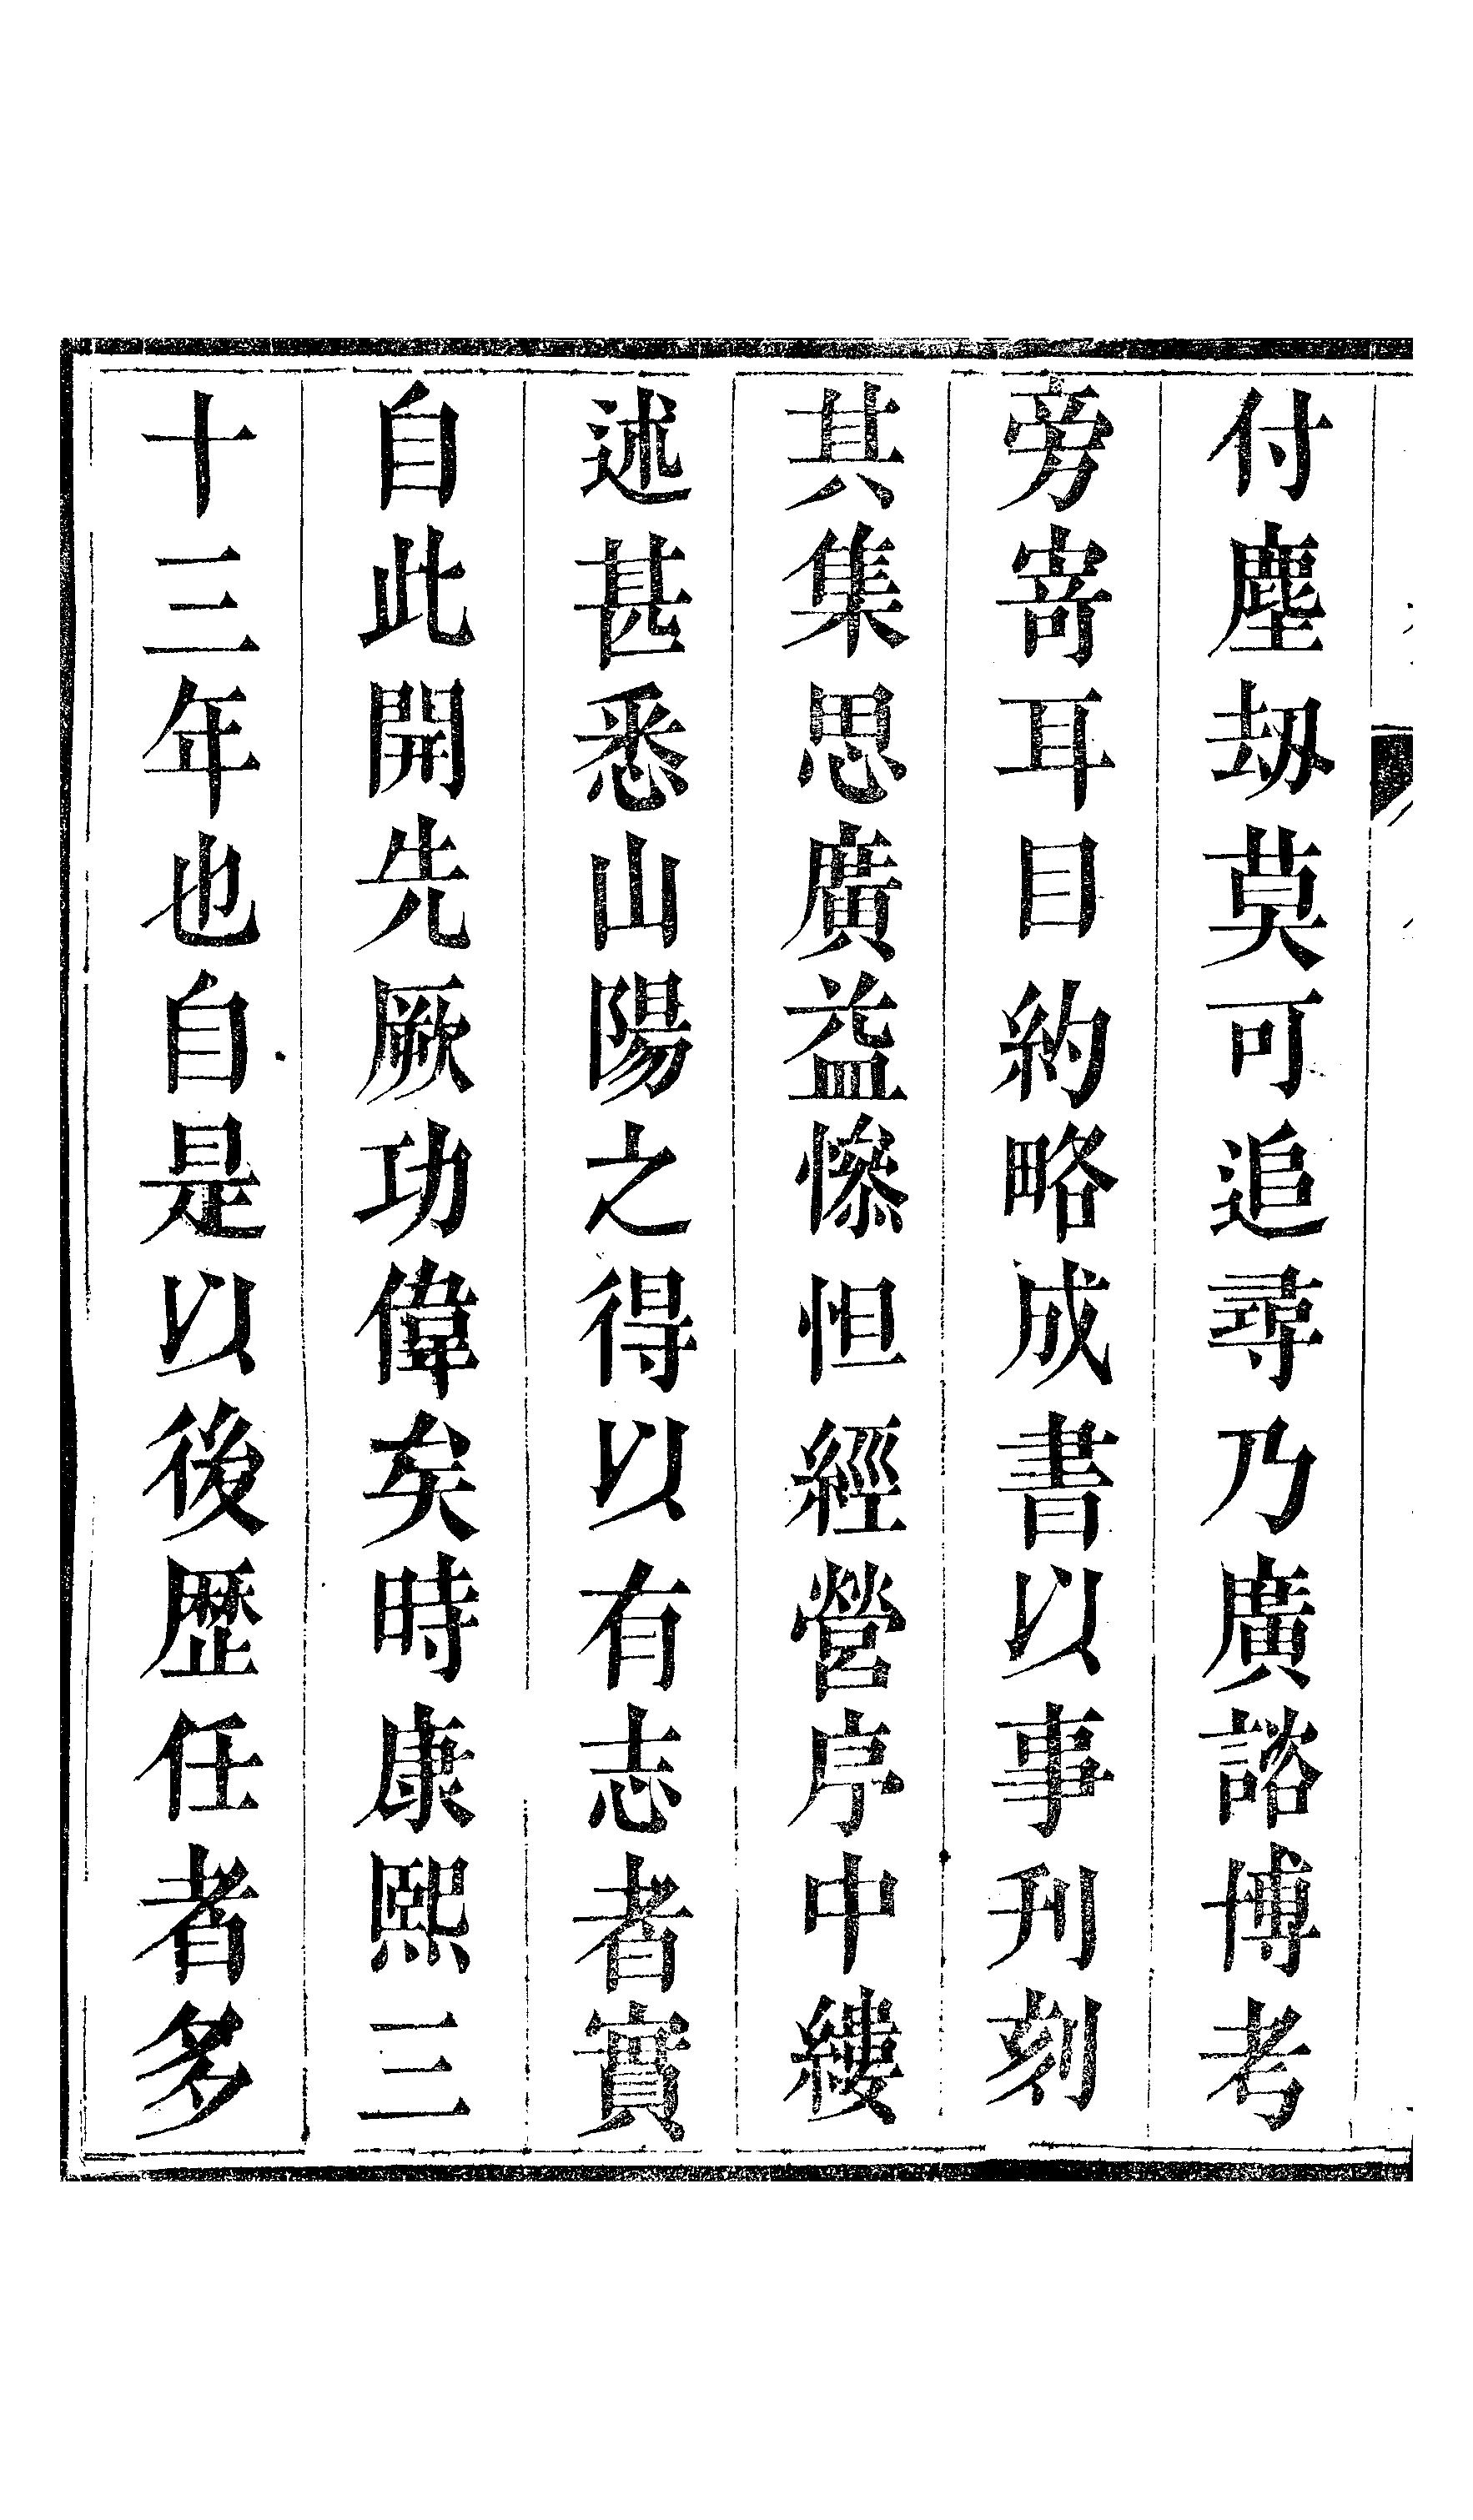 付塵劫莫可追尋乃廣諮博考
旁寄耳目約略成書以事刋刻
其集思廣益慘怛經營序中縷
述甚悉山陽之得以有志者實
自此開先厥功偉矣時康熙三
十三年也自是以後歷任者多